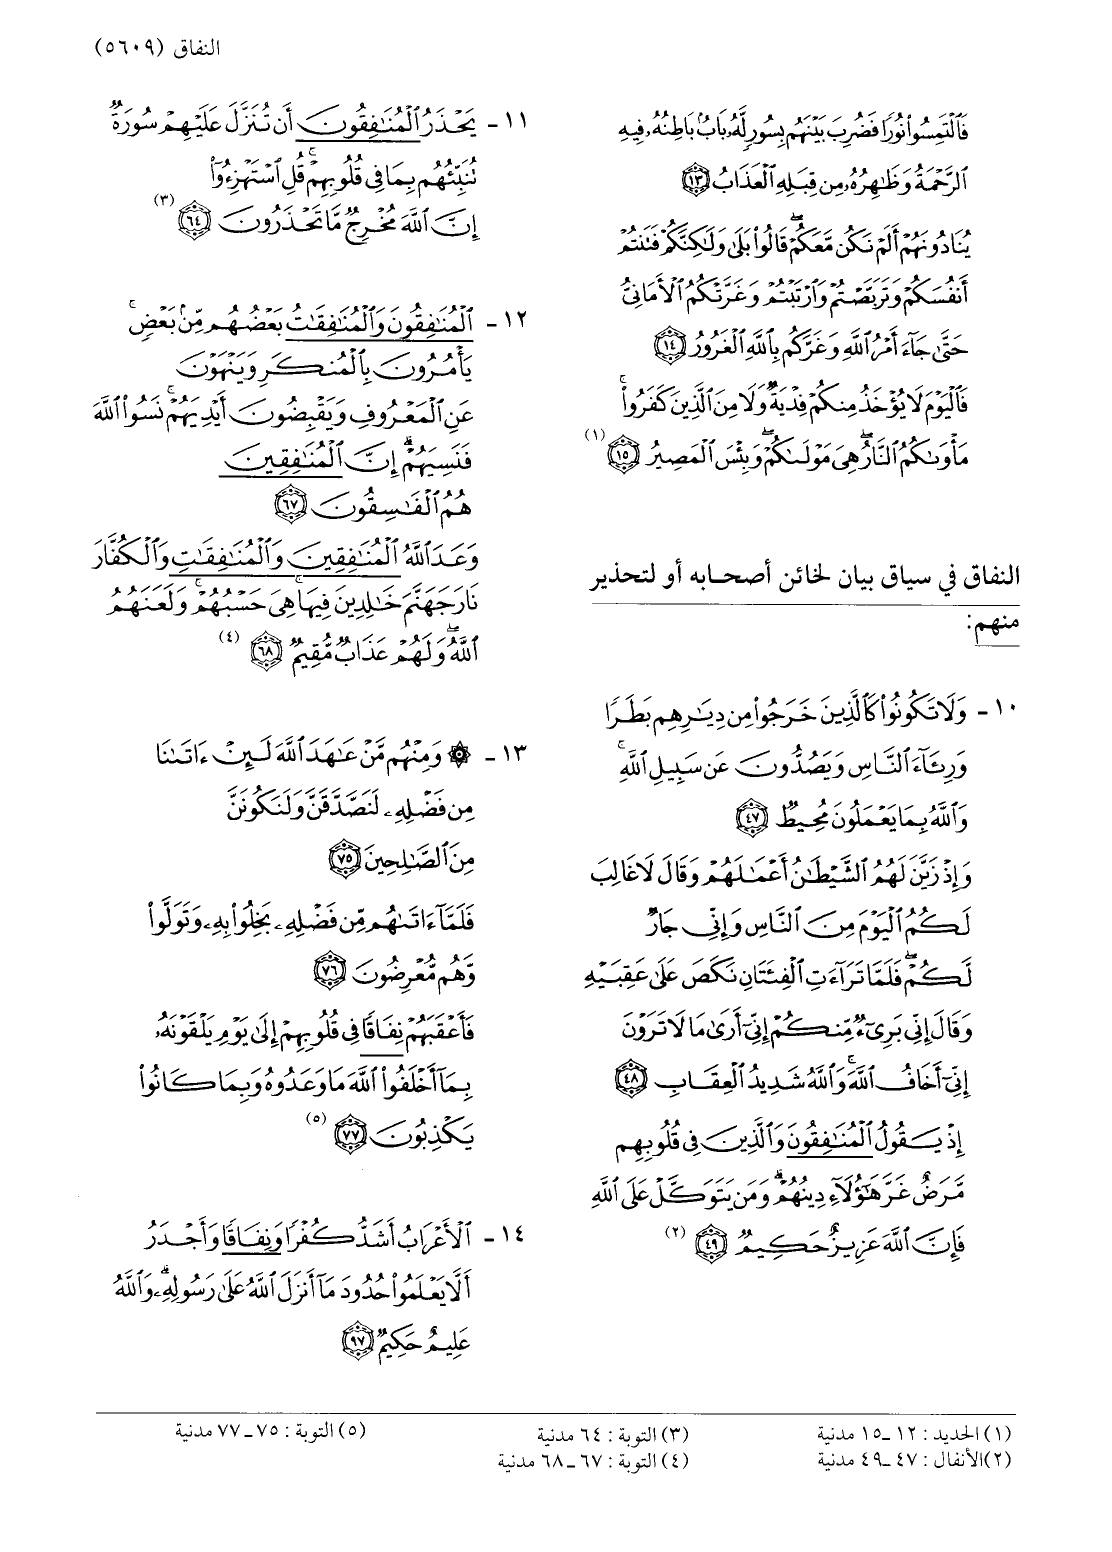 النفاق (٥٦٠٩)
فَٱلْتَمِسُوا۟ نُورًا فَضُرِبَ بَيْنَهُم بِسُورٍ لَّهُۥ بَابٌۢ بَاطِنُهُۥ فِيهِ
ٱلرَّحْمَةُ وَظَٰهِرُهُۥ مِن قِبَلِهِ ٱلْعَذَابُ ١٣
يُنَادُونَهُمْ أَلَمْ نَكُن مَّعَكُمْ ۖ قَالُوا۟ بَلَىٰ وَلَٰكِنَّكُمْ فَتَنتُمْ
أَنفُسَكُمْ وَتَرَبَّصْتُمْ وَٱرْتَبْتُمْ وَغَرَّتْكُمُ ٱلْأَمَانِىُّ
حَتَّىٰ جَآءَ أَمْرُ ٱللَّهِ وَغَرَّكُم بِٱللَّهِ ٱلْغَرُورُ ١٤
فَٱلْيَوْمَ لَا يُؤْخَذُ مِنكُمْ فِدْيَةٌ وَلَا مِنَ ٱلَّذِينَ كَفَرُوا۟ ۚ
مَأْوَىٰكُمُ ٱلنَّارُ ۖ هِىَ مَوْلَىٰكُمْ ۖ وَبِئْسَ ٱلْمَصِيرُ ١٥ (١)
النفاق في سياق بيان لخائن أصحابه أو لتحذير
منهم:
١٠- وَلَا تَكُونُوا۟ كَٱلَّذِينَ خَرَجُوا۟ مِن دِيَٰرِهِم بَطَرًا
وَرِئَآءَ ٱلنَّاسِ وَيَصُدُّونَ عَن سَبِيلِ ٱللَّهِ ۚ
وَٱللَّهُ بِمَا يَعْمَلُونَ مُحِيطٌ ٤٧
وَإِذْ زَيَّنَ لَهُمُ ٱلشَّيْطَٰنُ أَعْمَٰلَهُمْ وَقَالَ لَا غَالِبَ
لَكُمُ ٱلْيَوْمَ مِنَ ٱلنَّاسِ وَإِنِّى جَارٌ
لَّكُمْ ۖ فَلَمَّا تَرَآءَتِ ٱلْفِئَتَانِ نَكَصَ عَلَىٰ عَقِبَيْهِ
وَقَالَ إِنِّى بَرِىٓءٌ مِّنكُمْ إِنِّىٓ أَرَىٰ مَا لَا تَرَوْنَ
إِنِّىٓ أَخَافُ ٱللَّهَ ۚ وَٱللَّهُ شَدِيدُ ٱلْعِقَابِ ٤٨
إِذْ يَقُولُ ٱلْمُنَٰفِقُونَ وَٱلَّذِينَ فِى قُلُوبِهِم
مَّرَضٌ غَرَّ هَٰٓؤُلَآءِ دِينُهُمْ ۗ وَمَن يَتَوَكَّلْ عَلَى ٱللَّهِ
فَإِنَّ ٱللَّهَ عَزِيزٌ حَكِيمٌ ٤٩ (٢)
١١- يَحْذَرُ ٱلْمُنَٰفِقُونَ أَن تُنَزَّلَ عَلَيْهِمْ سُورَةٌ
تُنَبِّئُهُم بِمَا فِى قُلُوبِهِمْ ۚ قُلِ ٱسْتَهْزِءُوٓا۟
إِنَّ ٱللَّهَ مُخْرِجٌ مَّا تَحْذَرُونَ ٦٤ (٣)
١٢- ٱلْمُنَٰفِقُونَ وَٱلْمُنَٰفِقَٰتُ بَعْضُهُم مِّنۢ بَعْضٍ ۚ
يَأْمُرُونَ بِٱلْمُنكَرِ وَيَنْهَوْنَ
عَنِ ٱلْمَعْرُوفِ وَيَقْبِضُونَ أَيْدِيَهُمْ ۚ نَسُوا۟ ٱللَّهَ
فَنَسِيَهُمْ ۗ إِنَّ ٱلْمُنَٰفِقِينَ
هُمُ ٱلْفَٰسِقُونَ ٦٧
وَعَدَ ٱللَّهُ ٱلْمُنَٰفِقِينَ وَٱلْمُنَٰفِقَٰتِ وَٱلْكُفَّارَ
نَارَ جَهَنَّمَ خَٰلِدِينَ فِيهَا ۚ هِىَ حَسْبُهُمْ ۚ وَلَعَنَهُمُ
ٱللَّهُ ۖ وَلَهُمْ عَذَابٌ مُّقِيمٌ ٦٨ (٤)
١٣- ۞ وَمِنْهُم مَّنْ عَٰهَدَ ٱللَّهَ لَئِنْ ءَاتَىٰنَا
مِن فَضْلِهِۦ لَنَصَّدَّقَنَّ وَلَنَكُونَنَّ
مِنَ ٱلصَّٰلِحِينَ ٧٥
فَلَمَّآ ءَاتَىٰهُم مِّن فَضْلِهِۦ بَخِلُوا۟ بِهِۦ وَتَوَلَّوا۟
وَّهُم مُّعْرِضُونَ ٧٦
فَأَعْقَبَهُمْ نِفَاقًا فِى قُلُوبِهِمْ إِلَىٰ يَوْمِ يَلْقَوْنَهُۥ
بِمَآ أَخْلَفُوا۟ ٱللَّهَ مَا وَعَدُوهُ وَبِمَا كَانُوا۟
يَكْذِبُونَ ٧٧ (٥)
١٤- ٱلْأَعْرَابُ أَشَدُّ كُفْرًا وَنِفَاقًا وَأَجْدَرُ
أَلَّا يَعْلَمُوا۟ حُدُودَ مَآ أَنزَلَ ٱللَّهُ عَلَىٰ رَسُولِهِۦ ۗ وَٱللَّهُ
عَلِيمٌ حَكِيمٌ ٩٧
(١) الحديد : ١٢ـ١٥ مدنية
(٢) الأنفال : ٤٧ـ٤٩ مدنية
(٣) التوبة : ٦٤ مدنية
(٤) التوبة : ٦٧ـ٦٨ مدنية
(٥) التوبة : ٧٥ـ٧٧ مدنية